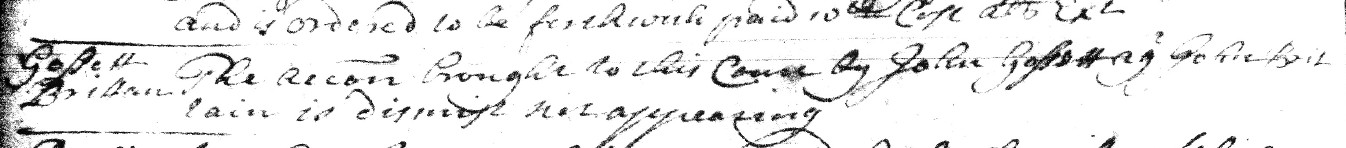 and is ordered to be forthwith paid wth Cost als Ex:
Gossett
Brittan
The accon brought to this Court by John Gossett agt John Brit
tain is dismist not appearing